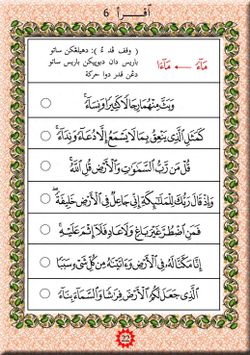 اقرأ 6
( وقف قد ءً ) : دهيلڠكن ساتو
باريس دان دبوڽيكن باريس ساتو
دڠن قدر دوا حركة
مَآءً ← مَآءَا
وَبَثَّ مِنْهُمَا رِجَالًا كَثِيرًا وَنِسَآءً
كَمَثَلِ الَّذِى يَنْعِقُ بِمَا لَا يَسْمَعُ إِلَّا دُعَآءً وَنِدَآءً
قُلْ مَن رَّبُّ السَّمَٰوَٰتِ وَالْأَرْضِ قُلِ اللَّهُ
وَإِذْ قَالَ رَبُّكَ لِلْمَلَٰٓئِكَةِ إِنِّى جَاعِلٌ فِى الْأَرْضِ خَلِيفَةً
فَمَنِ اضْطُرَّ غَيْرَ بَاغٍ وَلَا عَادٍ فَلَآ إِثْمَ عَلَيْهِ
إِنَّا مَكَّنَّا لَهُ فِى الْأَرْضِ وَءَاتَيْنَٰهُ مِن كُلِّ شَىْءٍ سَبَبًا
الَّذِى جَعَلَ لَكُمُ الْأَرْضَ فِرَٰشًا وَالسَّمَآءَ بِنَآءً
22